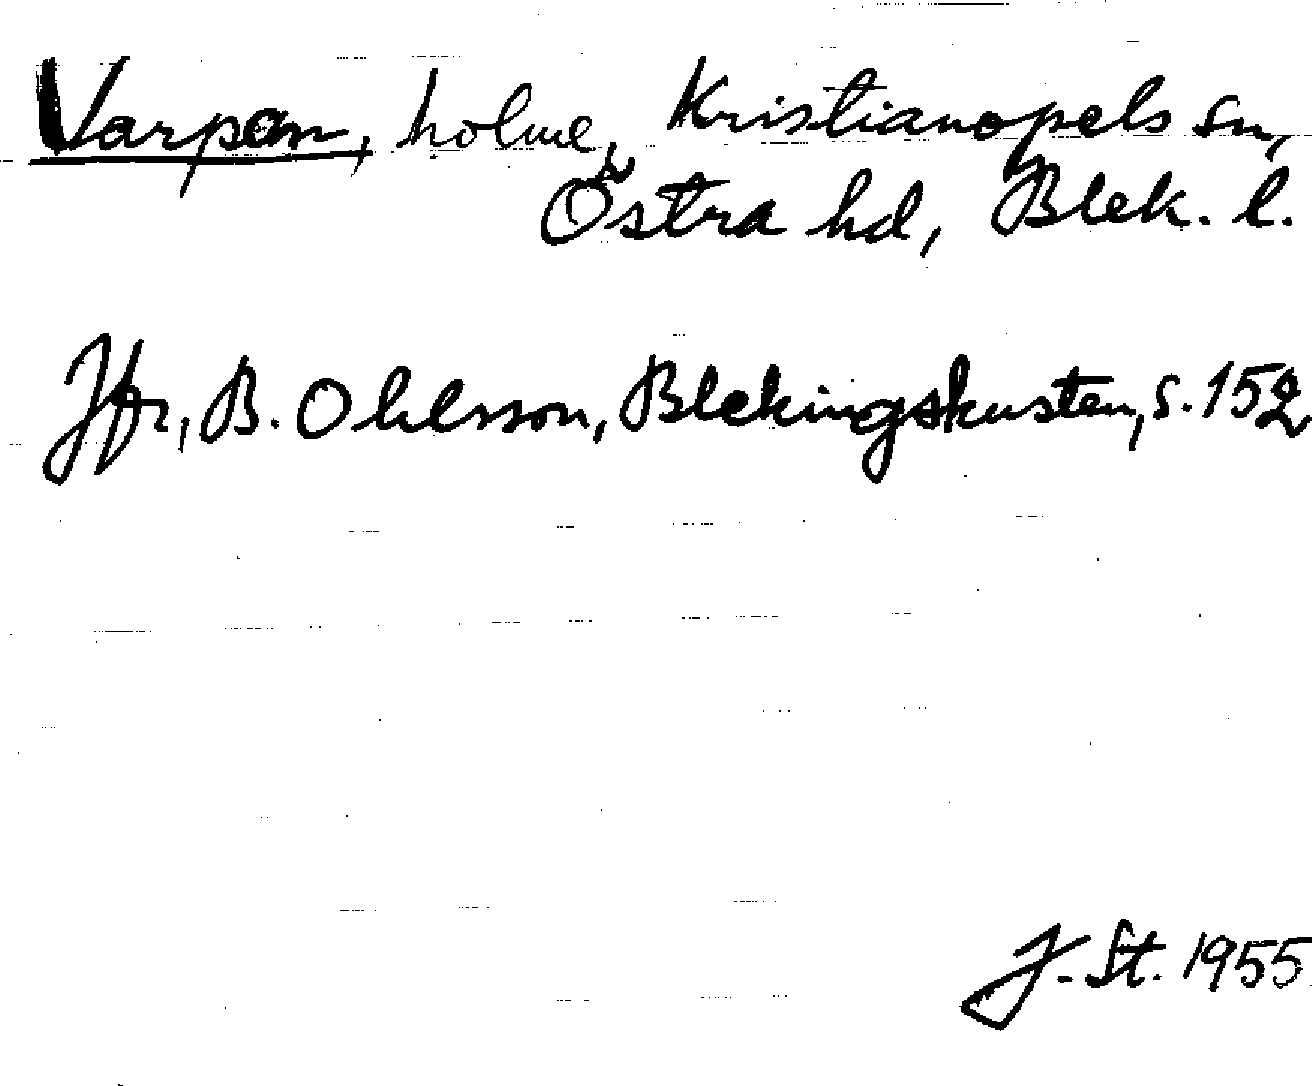 Varpan, holme, Kristianopels sn,
Östra hd, Blek. l.
Jfr, B. Ohlsson, Blekingskusten, s. 152
J. St. 1955